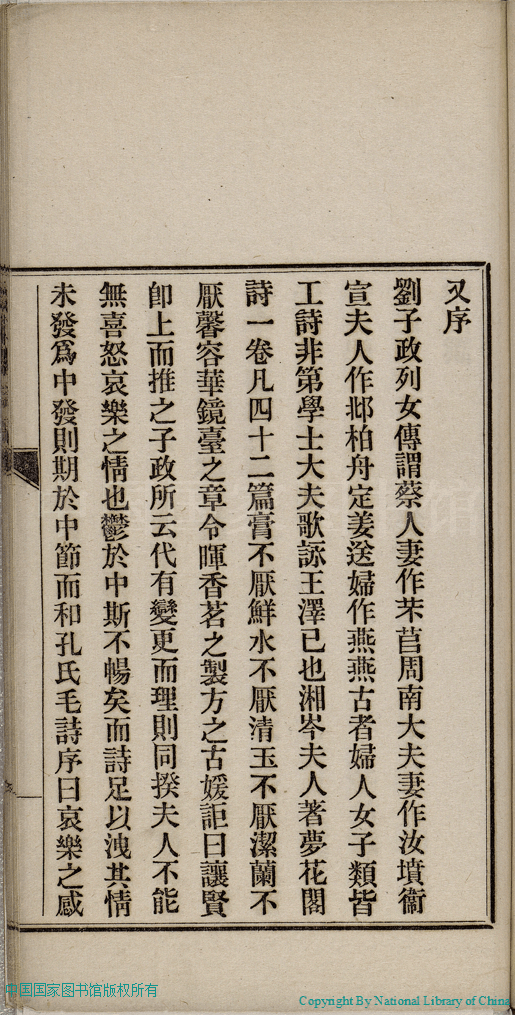 又序
劉子政列女傳謂蔡人妻作芣苢周南大夫妻作汝墳衞
宣夫人作邶柏舟定姜送婦作燕燕古者婦人女子類皆
工詩非第學士大夫歌詠王澤已也湘岑夫人著夢花閣
詩一卷凡四十二篇膏不厭鮮水不厭清玉不厭潔蘭不
厭馨容華鏡臺之章令暉香茗之製方之古媛詎曰讓賢
卽上而推之子政所云代有變更而理則同揆夫人不能
無喜怒哀樂之情也鬱於中斯不暢矣而詩足以洩其情
未發爲中發則期於中節而和孔氏毛詩序曰哀樂之感
中国国家图书馆版权所有
Copyright By National Library of China